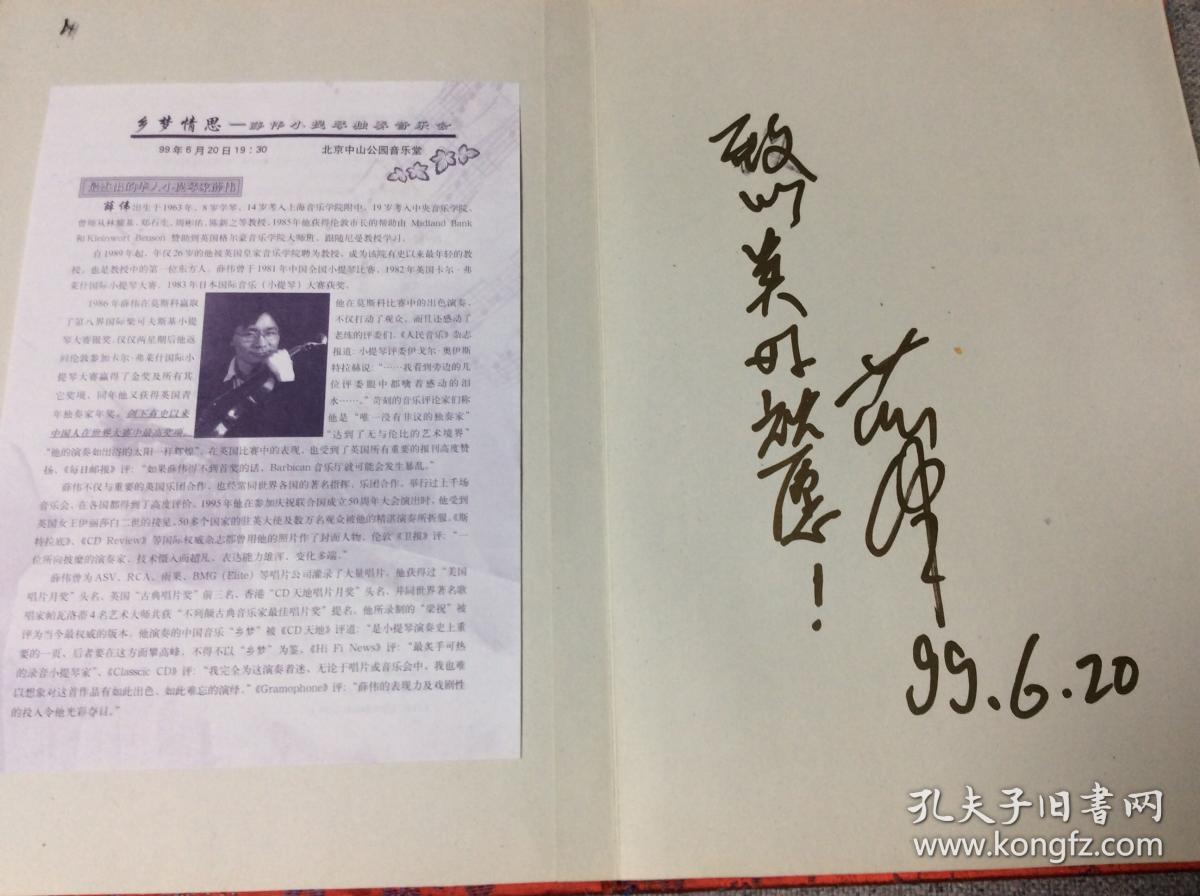 乡梦情思—薛伟小提琴独奏音乐会
99年6月20日19:30 北京中山公园音乐堂
杰出的华人小提琴家薛伟
薛伟出生于1963年、8岁学琴、14岁考入上海音乐学院附中、19岁考入中央音乐学院、
曾师从林耀基、郑石生、周彬佑、陈新之等教授。1985年他获得伦敦市长的帮助由 Midland Bank
和Kleinwort Benson 赞助到英国格尔豪音乐学院大师班、跟随尼曼教授学习。
自1989年起、年仅26岁的他被英国皇家音乐学院聘为教授、成为该院有史以来最年轻的教
授、也是教授中的第一位东方人。薛伟曾于1981年中国全国小提琴比赛、1982年英国卡尔·弗
莱什国际小提琴大赛、1983年日本国际音乐（小提琴）大赛获奖。
1986年薛伟在莫斯科赢取
了第八界国际柴可夫斯基小提
琴大赛银奖、仅仅两星期后他返
回伦敦参加卡尔·弗莱什国际小
提琴大赛赢得了金奖及所有其
它奖项、同年他又获得英国青
年独奏家年奖。创下有史以来
中国人在世界大赛中最高奖项。
他在莫斯科比赛中的出色演奏、
不仅打动了观众、而且还感动了
老练的评委们。《人民音乐》杂志
报道：小提琴评委伊戈尔·奥伊斯
特拉赫说：“……我看到旁边的几
位评委眼中都噙着感动的泪
水……。”苛刻的音乐评论家们称
他是“唯一没有非议的独奏家”
“达到了无与伦比的艺术境界”
“他的演奏如出浴的太阳一样辉煌”。在英国比赛中的表现、也受到了英国所有重要的报刊高度赞
扬、《每日邮报》评：“如果薛伟得不到首奖的话、Barbican音乐厅就可能会发生暴乱。”
薛伟不仅与重要的英国乐团合作、也经常同世界各国的著名指挥、乐团合作、举行过上千场
音乐会、在各国都得到了高度评价。1995年他在参加庆祝联合国成立50周年大会演出时、他受到
英国女王伊丽莎白二世的接见、50多个国家的驻英大使及数万名观众被他的精湛演奏所折服。《斯
特拉底》、《CD Review》等国际权威杂志都曾用他的照片作了封面人物、伦敦《卫报》评：“一
位所向披靡的演奏家、技术慑人而超凡、表达能力雄浑、变化多端。”
薛伟曾为ASV、RCA、雨果、BMG（Elite）等唱片公司灌录了大量唱片。他获得过“美国
唱片月奖”头名、英国“古典唱片奖”前三名、香港“CD天地唱片月奖”头名、并同世界著名歌
唱家帕瓦洛蒂4名艺术大师共获“不列颠古典音乐家最佳唱片奖”提名。他所录制的“梁祝”被
评为当今最权威的版本。他演奏的中国音乐“乡梦”被《CD天地》评道：“是小提琴演奏史上重
要的一页、后者要在这方面攀高峰、不得不以“乡梦”为鉴。《Hi Fi News》评：“最炙手可热
的录音小提琴家”、《Classcic CD》评：“我完全为这演奏着迷、无论于唱片或音乐会中、我也难
以想象对这首作品有如此出色、如此难忘的演绎。”《Gramophone》评：“薛伟的表现力及戏剧性
的投入令他光彩夺目。”
致以美好祝愿！
薛伟
99.6.20
孔夫子旧书网
www.kongfz.com